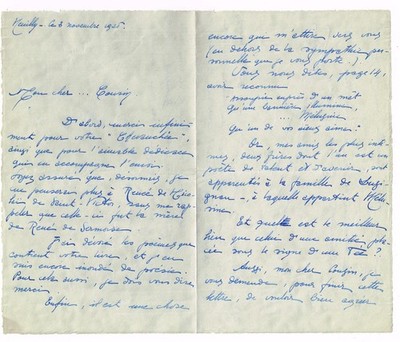 Neuilly - ce 3 novembre 1925.
Mon cher ... Cousin
D'abord, merci infiniment
pour votre "Chevauchée",
ainsi que pour l'aimable dédicace
qui en accompagne l'envoi.
Soyez assuré que, désormais, je
ne penserai plus à Renée de
sans me rappeler
que celle-ci fut la mère
de Renée de
J'ai dévoré les poèmes que
contient votre livre, et j'en
suis encore inondé de poésie.
Pour cela aussi, je dois vous dire
merci.
Enfin, il est une chose
encore qui m'attire vers vous
(en dehors de la sympathie personnelle
que je vous porte).
Vous nous dites, page 14,
avoir reconnu
... Mélusine
Qu'un de vos aïeux aima!
Or, mes amis les plus intimes,
deux frères dont l'un est un
poète de talent et d'avenir, sont
apparentés à la famille de Lusignan
-, à laquelle appartient Mélusine.
Et quel est le meilleur
lien que celui d'une amitié
sous le signe d'une Fée?
Aussi, mon cher Cousin, je
vous demande, pour finir cette
lettre, de vouloir bien agréer